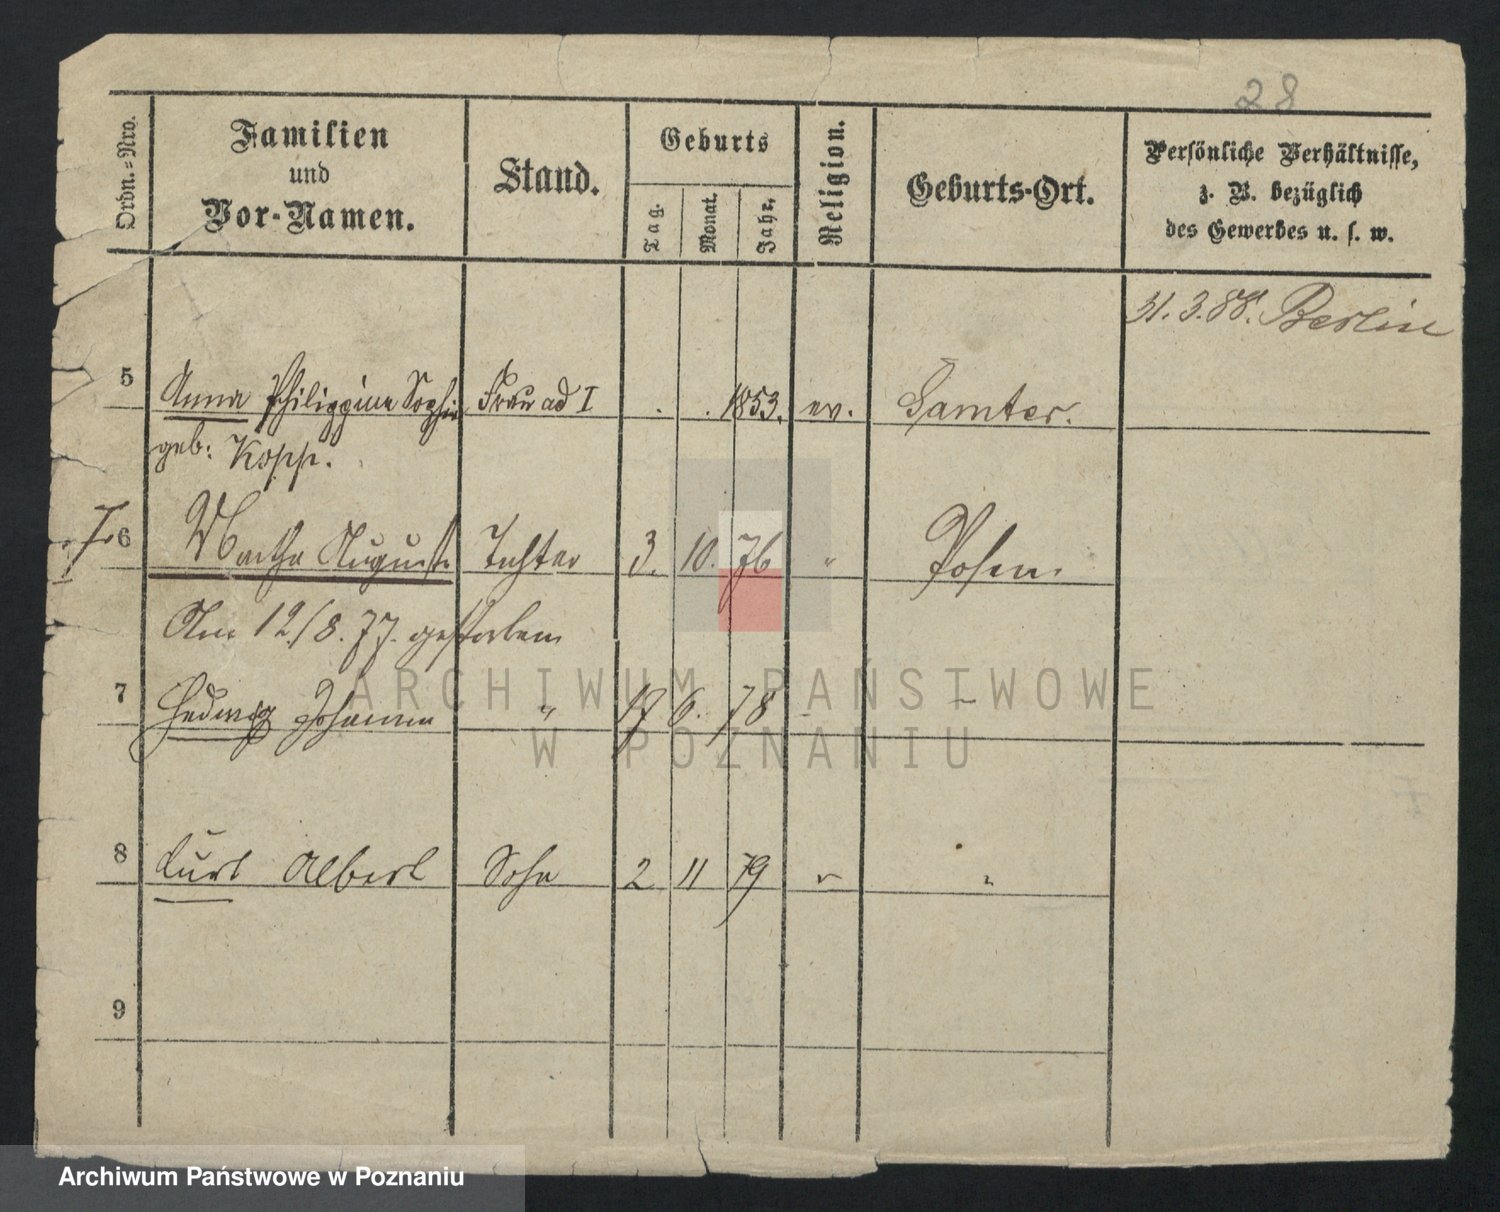 28
Ordn.-Nro.
Familien
und
Vor-Namen.
Stand.
Geburts
Tag.
Monat.
Jahr.
Religion.
Geburts-Ort.
Persönliche Verhältnisse,
z. B. bezüglich
des Gewerbes u. s. w.
31.3.88. Berlin
5 Anna Philippine Sophie Frau ad I . . 1853. ev. Samter.
geb: Kopp.
6 Martha Auguste Tochter 3. 10. 76 " Posen.
Am 12/8. 77. gestorben
7 Hedwig Johanna " 17 6. 78 - -
8 Curt Albert Sohn 2 11 79 " "
9
ARCHIWUM PAŃSTWOWE
W POZNANIU
Archiwum Państwowe w Poznaniu